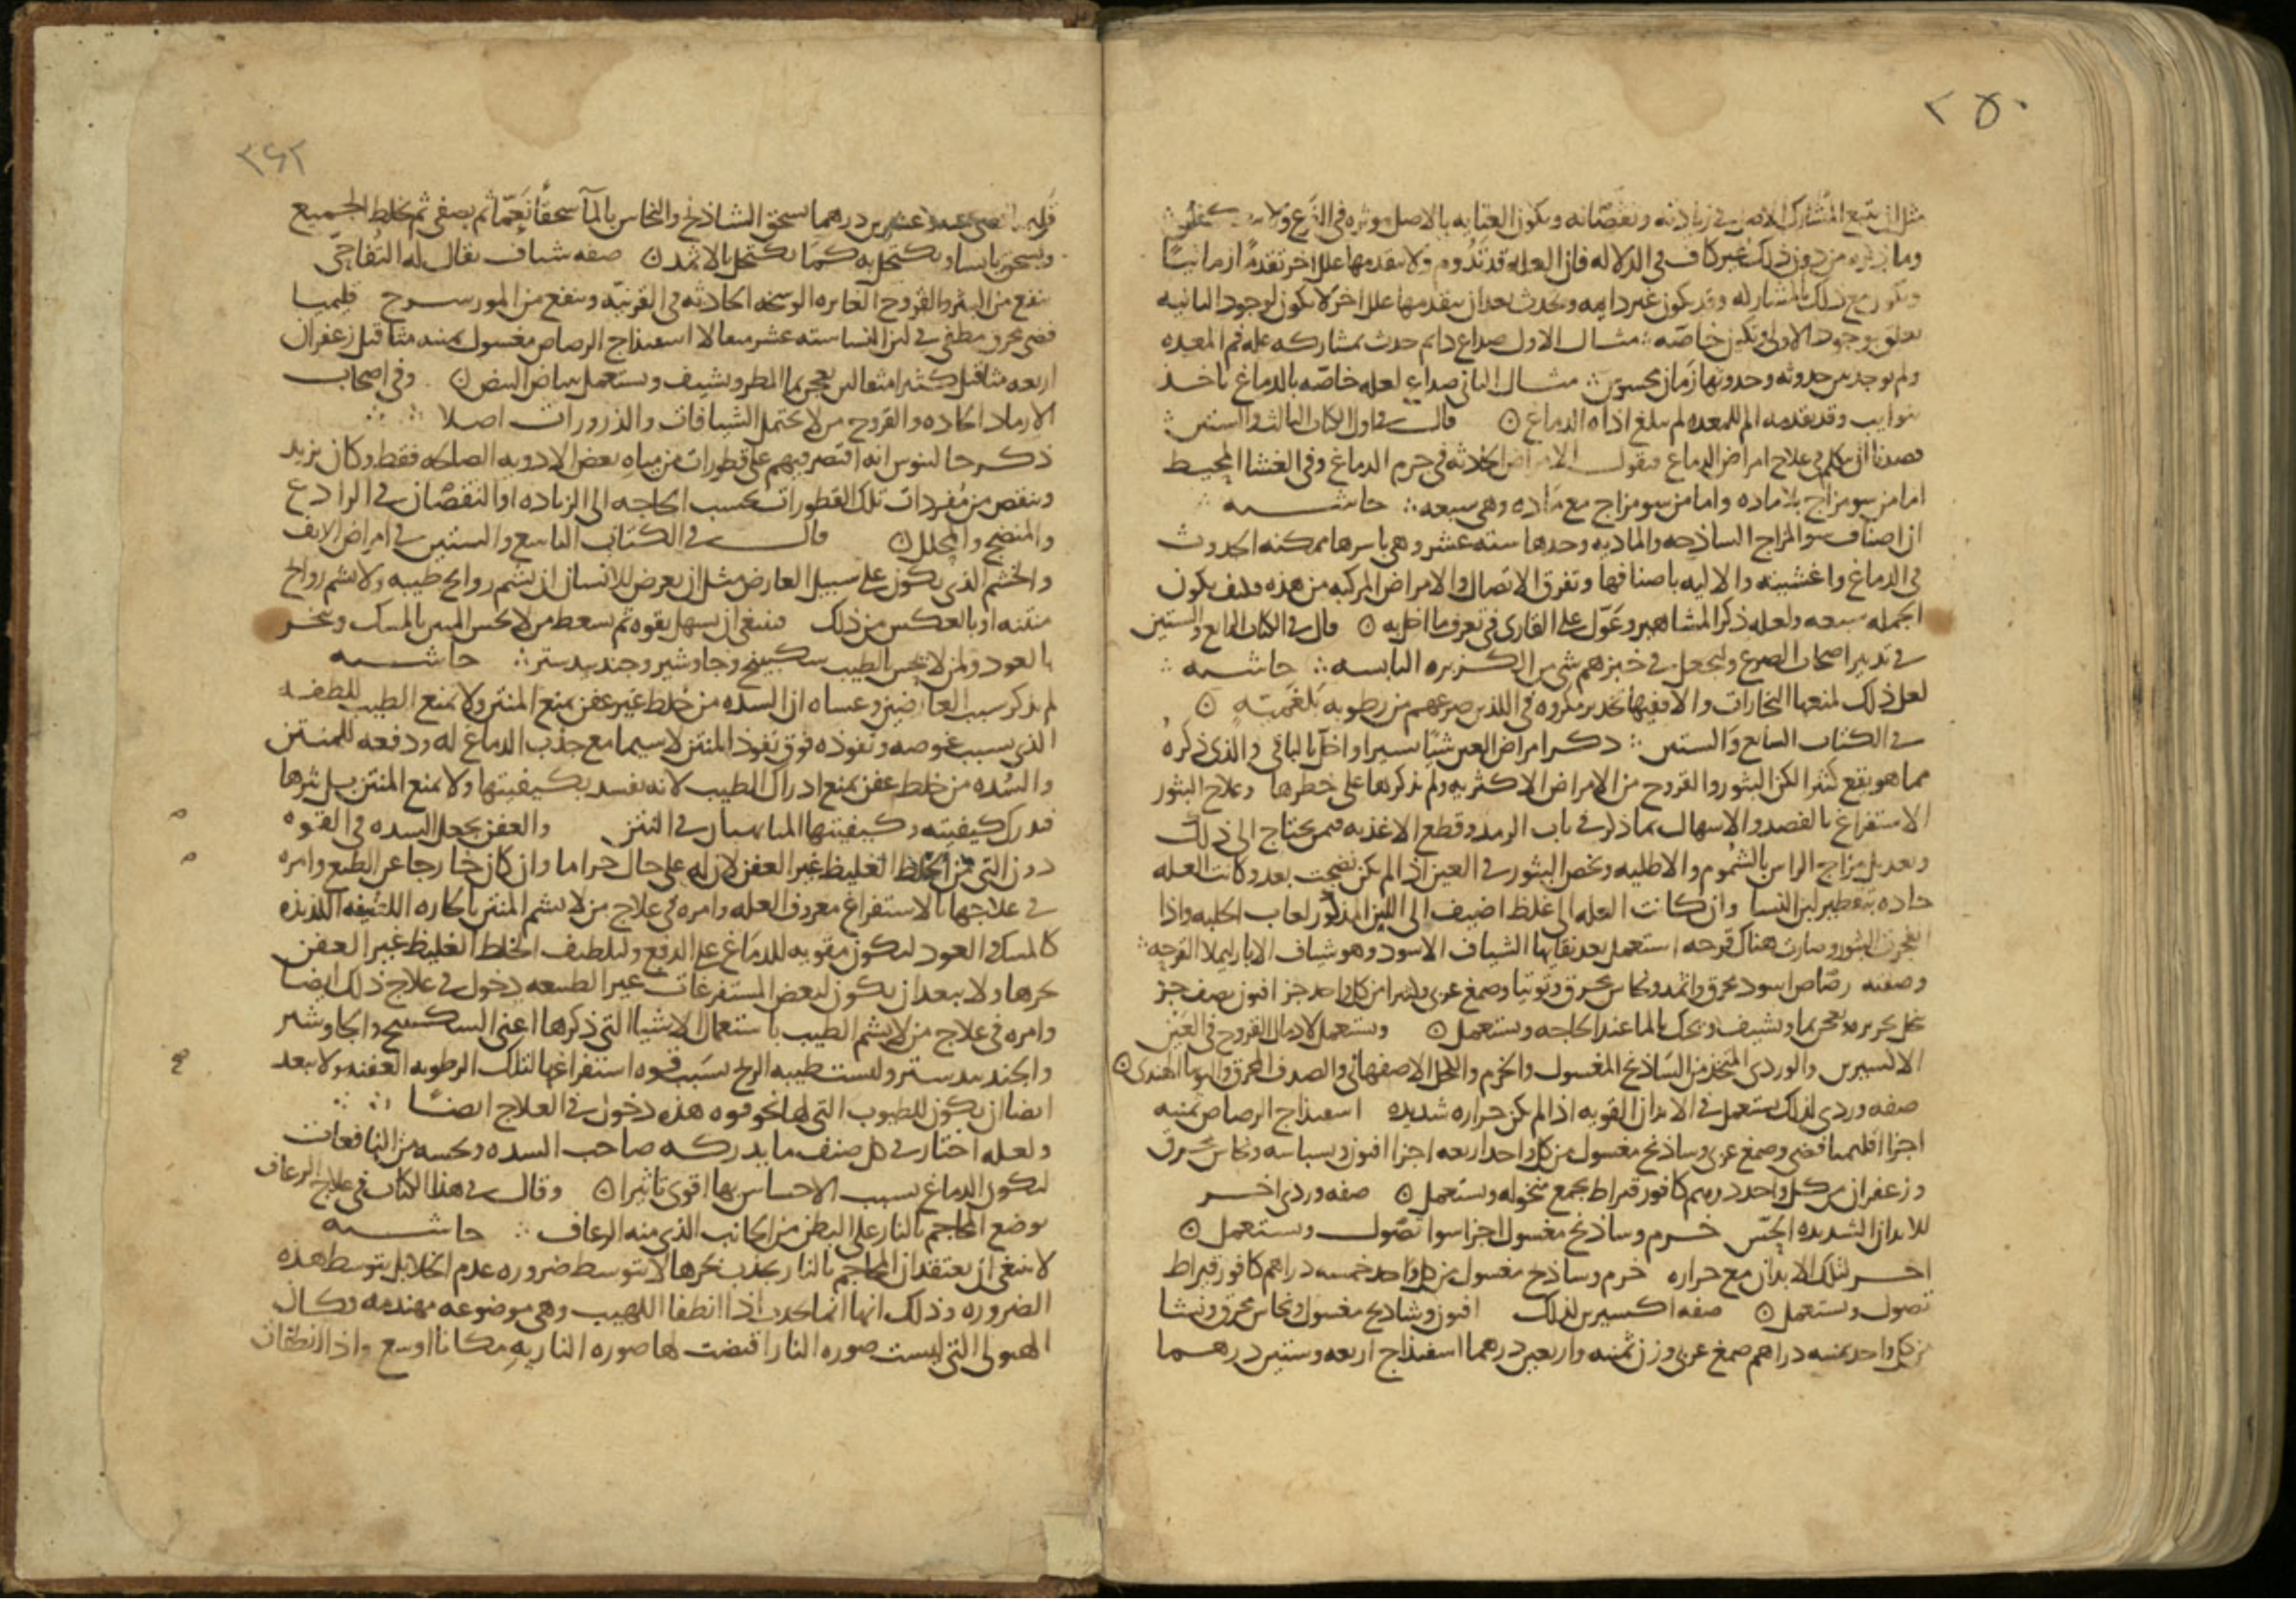 ٢٥٠
مثل ان يتبع المشارك الاصل في زيادته ونقصانه ويكون العنايه بالاصل موثره في الفرع ولا
وما ذكره من دون ذلك غير كاف في الدلاله فان العله قد تدوم ولا يتقدمها علل اخر تقدما زمانيا
ويكون مع ذلك المشاركه وقد يكون غير دايمه وتحدث بعد ان يتقدمها علل اخر لا يكون لوجود الثانيه
تعلق بوجود الاولى فتكن خاصه مثال الاول صداع دايم حدث بمشاركه عله فم المعده
ولم يوجد بين حدوثه وحدوثها زمان محسوس مثال الثاني صداع لعله خاصه بالدماغ ياخذ
بنوايب وقد تقدمه الم للمعده لم يبلغ اذاه الدماغ قال في اول الكتاب الثالث والستين
قصدنا ان نتكلم في علاج امراض الدماغ فنقول الامراض الحادثه في جرم الدماغ وفي الغشا المحيط
اما من سو مزاج بلا ماده واما من سو مزاج مع ماده وهي سبعه حاشيه
ان اصناف سو المزاج الساذجه والماديه وحدها سته عشر وهي باسرها ممكنه الحدوث
في الدماغ واغشيته والاليه باصنافها وتفرق الاتصال والامراض المركبه من هذه فكيف يكون
الجمله سبعه ولعله ذكر المشاهير وعول على القارى في تعرف ما اخل به قال في الكتاب الرابع والستين
في تدبير اصحاب الصرع وليجعل في خبزهم شي من الكزبره اليابسه حاشيه
لعل ذلك لمنعها البخارات والا ففيها تخدير مكروه في اللذين صرعهم من رطوبه بلغميه
في الكتاب السابع والستين ذكر امراض العين شيا يسيرا واخل بالباقي والذي ذكره
مما هو يقع كثيرا لكن البثور والقروح من الامراض الاكثريه ولم يذكرها على خطرها وعلاج البثور
الاستفراغ بالفصد والاسهال بما ذكر في باب الرمد وقطع الاغذيه فمن يحتاج الى ذلك
وتعديل مزاج الراس بالشموم والاطليه وتخص البثور في العين اذا لم يكن نضجت بعد وكانت العله
حاده بتقطير لبن النسا وان كانت العله الى غلظ اضيف الى اللبن المذكور لعاب الحلبه واذا
انفجرت البثور وصارت هناك قرحه استعمل بعد نقايها الشياف الاسود وهو شياف الابار ليملا القرحه
وصفته رصاص اسود محرق واثمد ونحاس محرق وتوتيا وصمغ عربي وكثيرا من كل واحد جز افيون نصف جز
ينخل بحريره ويعجن بما ويشيف ويحك بالما عند الحاجه ويستعمل ويستعمل لادمال القروح في العين
الاكسيرين والوردي المتخذ من الشاذنج المغسول والخرم والكحل الاصفهاني والصدف المحرق والتوتيا الهندي
صفه وردي لذلك يستعمل في الابدان القويه اذا لم يكن حراره شديده اسفيذاج الرصاص ثمنيه
اجزا اقليميا فضي وصمغ عربي وساذنج مغسول من كل واحد اربعه اجزا افيون وبسباسه ونحاس محرق
وزعفران من كل واحد درهم كافور قيراط يجمع منخوله ويستعمل صفه وردي اخر
للابدان الشديده الحس خرم وساذنج مغسول اجزا سوا تصول ويستعمل
اخر لتلك الابدان مع حراره خرم وساذنج مغسول من كل واحد خمسه دراهم كافور قيراط
تصول ويستعمل صفه اكسيرين لذلك افيون وشاذنج مغسول ونحاس محرق ونشا
من كل واحد ثمنيه دراهم صمغ عربي وزن ثمنيه واربعين درهما اسفيذاج اربعه وستين درهما
٢٤٢
عشرين درهما يسحق الشاذنج والنحاس بالمآ سحقا نعما ثم يصفى ثم يخلط الجميع
ويسحق يابسا ويكتحل به كما يكتحل بالاثمد صفه شياف يقال له التفاحي
ينفع من البثر والقروح الغايره الوسخه الحادثه في القرنيه وينفع من المورسرج قليميا
فضي محرق مطفى في لبن النسا سته عشر مثقالا اسفيذاج الرصاص مغسول ثمنيه مثاقيل زعفران
اربعه مثاقيل كثيرا مثقالين يعجن بما المطر ويشيف ويستعمل ببياض البيض وفي اصحاب
الارماد الحاده والقروح من لا يحتمل الشيافات والذرورات اصلا
ذكر جالينوس انه اقتصر فيهم على قطورات من مياه بعض الادويه الصالحه فقط وكان يزيد
وينقص من مفردات تلك القطورات بحسب الحاجه الى الزياده او النقصان في الرادع
والمنضج والمحلل قال في الكتاب التاسع والستين في امراض الانف
والخشم الذي يكون على سبيل العارض مثل ان يعرض للانسان ان يشم روايح طيبه ولا يشم روايح
منتنه او بالعكس من ذلك فينبغي ان يسهل بقوه ثم يسعط من لا يحس المنتن بالمسك ويبخر
بالعود ومن لا يحس الطيب سكبينج وجاوشير وجندبيدستر حاشيه
لم يذكر سبب العارضين وعساه ان السده من خلط غير عفن يمنع المنتن ولا يمنع الطيب للطفه
الذي بسبب غوصه ونفوذه فوق نفوذ المنتن لا سيما مع جذب الدماغ له ودفعه للمنتن
والسده من خلط عفن يمنع ادراك الطيب لانه يفسد بكيفيتها ولا يمنع المنتن بل يثرها
فيدرك كيفيته وكيفيتها المتناسبتان في النتن والعفن يجعل السده في القوه
دون التي من الخلط الغليظ غير العفن لان له على حال حرا ما وان كان خارجا عن الطبع وامره
في علاجها بالاستفراغ معروف العله وامره في علاج من لا يشم المنتن بالحاره اللطيفه اللذيذه
كالمسك والعود لتكون مقويه للدماغ على الدفع ولتلطيف الخلط الغليظ غير العفن
بحرها ولا يبعد ان يكون لبعض المستفرغات غير الطبيعه دخول في علاج ذلك ايضا
وامره في علاج من لا يشم الطيب باستعمال الاشيا التي ذكرها اعني السكبينج والجاوشير
والجندبيدستر وليست طيبه الريح بسبب قوه استفراغها لتلك الرطوبه العفنه ولا يبعد
ايضا ان يكون للطيوب التي لها نحو قوه هذه دخول في العلاج ايضا
ولعله اختار في كل صنف ما يدركه صاحب السده ويحسه من النافعات
ليكون الدماغ بسبب الاحساس بها اقوى تاثيرا وقال في هذا الكتاب في علاج الرعاف
يوضع المحاجم بالنار على البطن من الجانب الذي منه الرعاف حاشيه
لا ينبغي ان يعتقد ان المحاجم بالنار يجذب بحرها لا بتوسط ضروره عدم الخلا بل بتوسط هذه
الضروره وذلك انها انما تجذب اذا انطفا اللهيب وهي موضوعه مهندمه وكان
الهيولى التي لبست صوره النار اقتضت لها صوره الناريه مكانا اوسع واذا انطفات